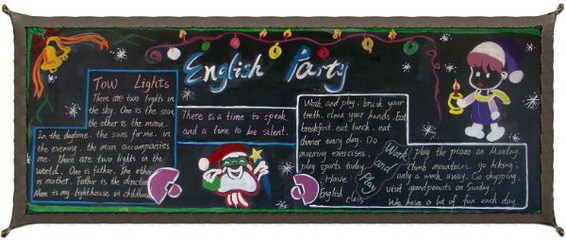 English Party
Tow Lights
There are two lights in
the sky. One is the sun,
the other is the moon.
In the daytime. the suns for me. in
the evening, the moon accompanies
me. There are two lights in the
world. One is father. The other
is mother. Father is the direction
Mom is my lighthouse in childhood
There is a time to speak
and a time to be silent.
Work and play. brush your
teeth. clean your hands. eat
breakfast. eat lunch. eat
dinner every day. Do
morning exercises.
play sports today.
Have
English class.
Work
and
Play
play the piano on Monday.
climb mountains. go hiking.
only a week away. Go shopping.
visit grandparents on Sunday.
We have a lot of fun each day.